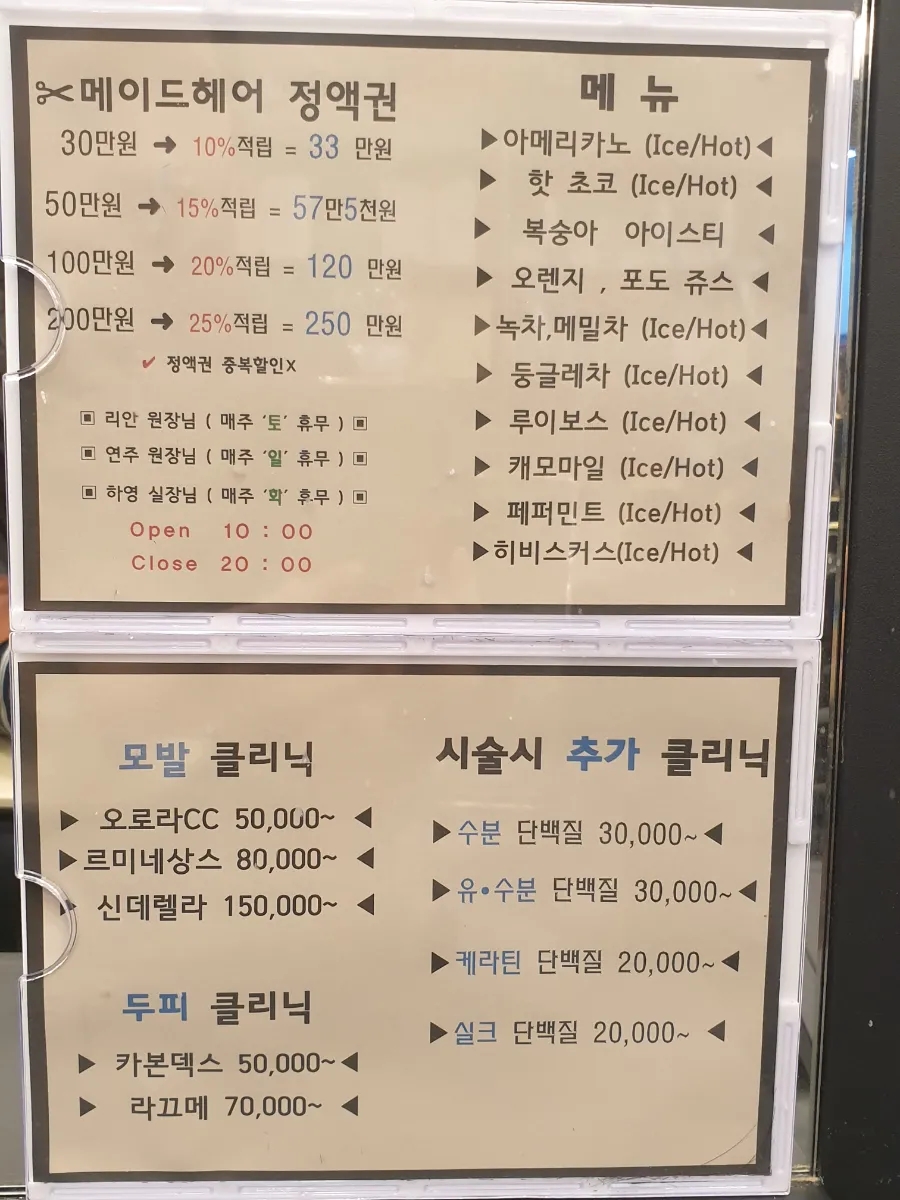 ✂메이드헤어 정액권
30만원 ➔ 10%적립 = 33 만원
50만원 ➔ 15%적립 = 57만5천원
100만원 ➔ 20%적립 = 120 만원
200만원 ➔ 25%적립 = 250 만원
✔ 정액권 중복할인X
▣ 리안 원장님 ( 매주 ‘토’ 휴무 ) ▣
▣ 연주 원장님 ( 매주 ‘일’ 휴무 ) ▣
▣ 하영 실장님 ( 매주 ‘화’ 휴무 ) ▣
Open 10 : 00
Close 20 : 00
메 뉴
▶아메리카노 (Ice/Hot)◀
▶ 핫 초코 (Ice/Hot) ◀
▶ 복숭아 아이스티 ◀
▶ 오렌지 , 포도 쥬스 ◀
▶녹차,메밀차 (Ice/Hot)◀
▶ 둥글레차 (Ice/Hot) ◀
▶ 루이보스 (Ice/Hot) ◀
▶ 캐모마일 (Ice/Hot) ◀
▶ 페퍼민트 (Ice/Hot) ◀
▶히비스커스(Ice/Hot) ◀
모발 클리닉
▶ 오로라CC 50,000~ ◀
▶르미네상스 80,000~ ◀
▶ 신데렐라 150,000~ ◀
두피 클리닉
▶ 카본덱스 50,000~◀
▶ 라끄메 70,000~ ◀
시술시 추가 클리닉
▶수분 단백질 30,000~◀
▶유•수분 단백질 30,000~◀
▶케라틴 단백질 20,000~◀
▶실크 단백질 20,000~ ◀